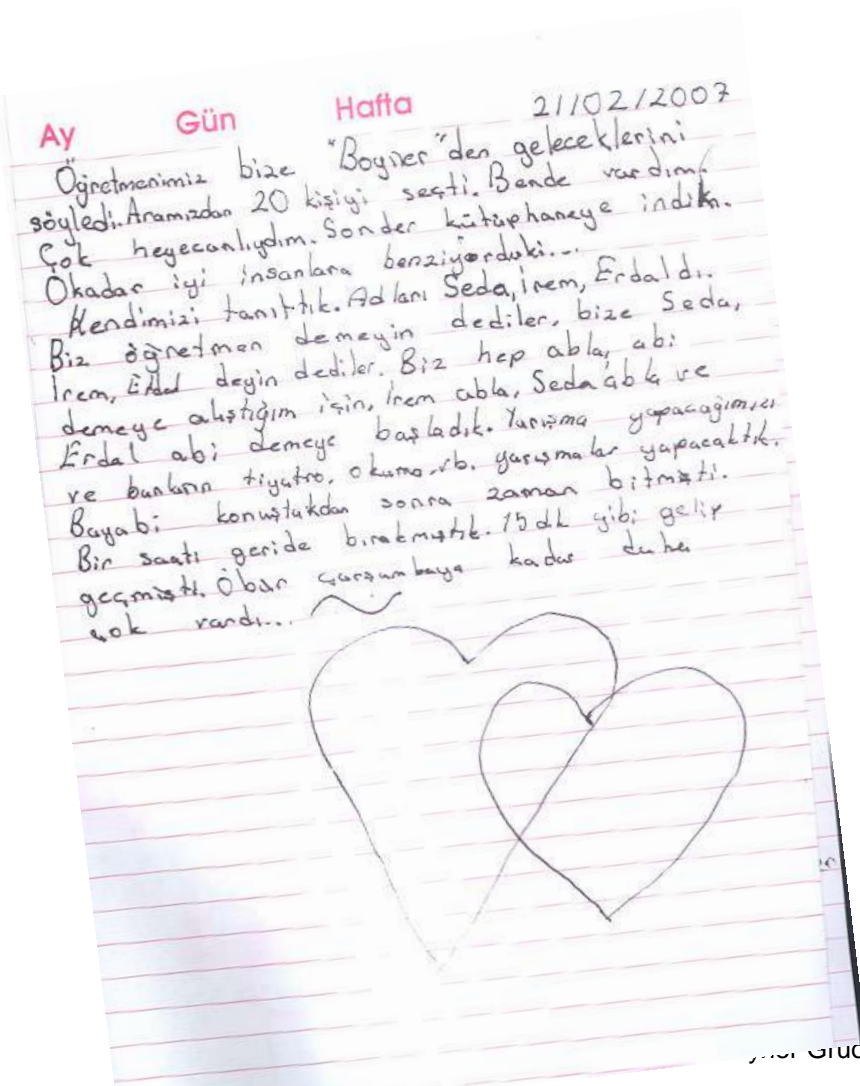 Ay Gün Hafta 21/02/2007
Öğretmenimiz bize "Boyner"den geleceklerini
söyledi. Aramızdan 20 kişiyi seçti. Bende vardım.
Çok heyecanlıydım. Sonder kütüphaneye indik.
Okadar iyi insanlara benziyorduki...
Kendimizi tanıttık. Adları Seda, İrem, Erdaldı.
Biz öğretmen demeyin dediler, bize Seda,
İrem, Erdal deyin dediler. Biz hep abla, abi
demeye alıştığım için, İrem abla, Seda abla ve
Erdal abi demeye başladık. Yarışma yapacağımızı
ve bunların tiyatro, okuma, vb. yarışmalar yapacaktık.
Bayabi konuştukdan sonra zaman bitmişti.
Bir saati geride bırakmıştık. 15 dk gibi gelip
geçmişti. Öbür çarşambaya kadar daha
çok vardı...